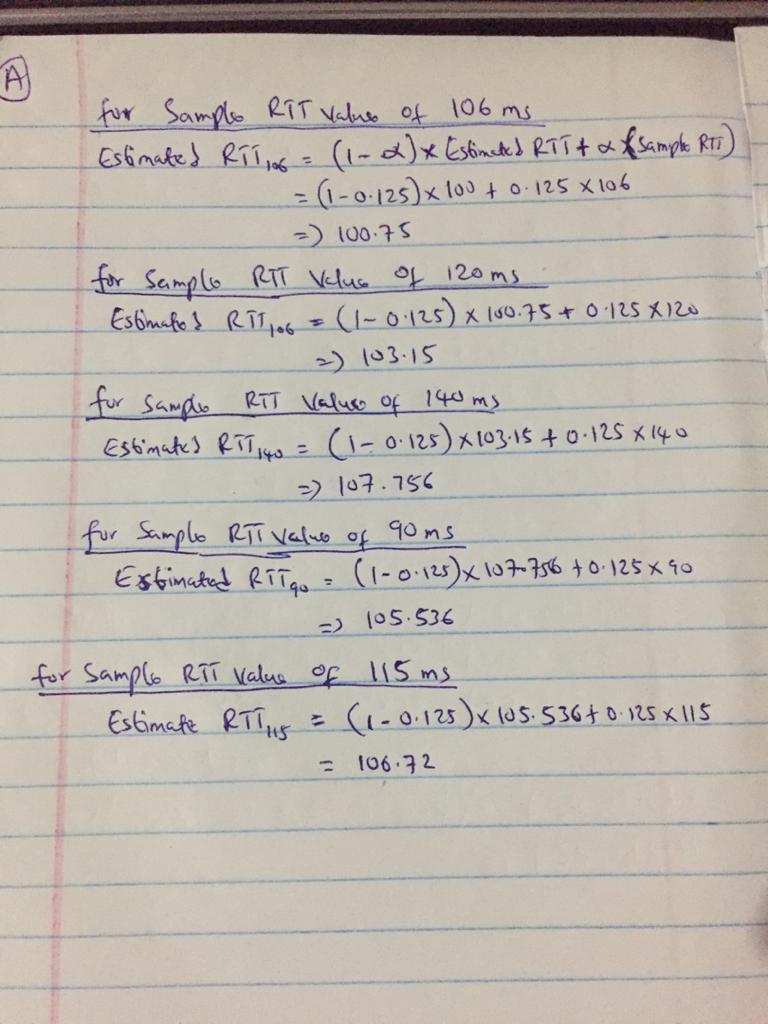 A
for Sample RTT value of 106 ms
Estimated RTT106 = (1 - α) * Estimated RTT + α * (Sample RTT)
= (1-0.125) x 100 + 0.125 x 106
=) 100.75
for Sample RTT Value of 120 ms
Estimated RTT106 = (1- 0.125) x 100.75 + 0.125 x 120
=) 103.15
for Sample RTT Value of 140 ms
Estimated RTT140 = (1- 0.125) x 103.15 + 0.125 x 140
=) 107.756
for Sample RTT Value of 90 ms
Estimated RTT90 = (1-0.125) x 107.756 + 0.125 x 90
=) 105.536
for Sample RTT Value of 115 ms
Estimate RTT115 = (1-0.125) x 105.536 + 0.125 x 115
= 106.72